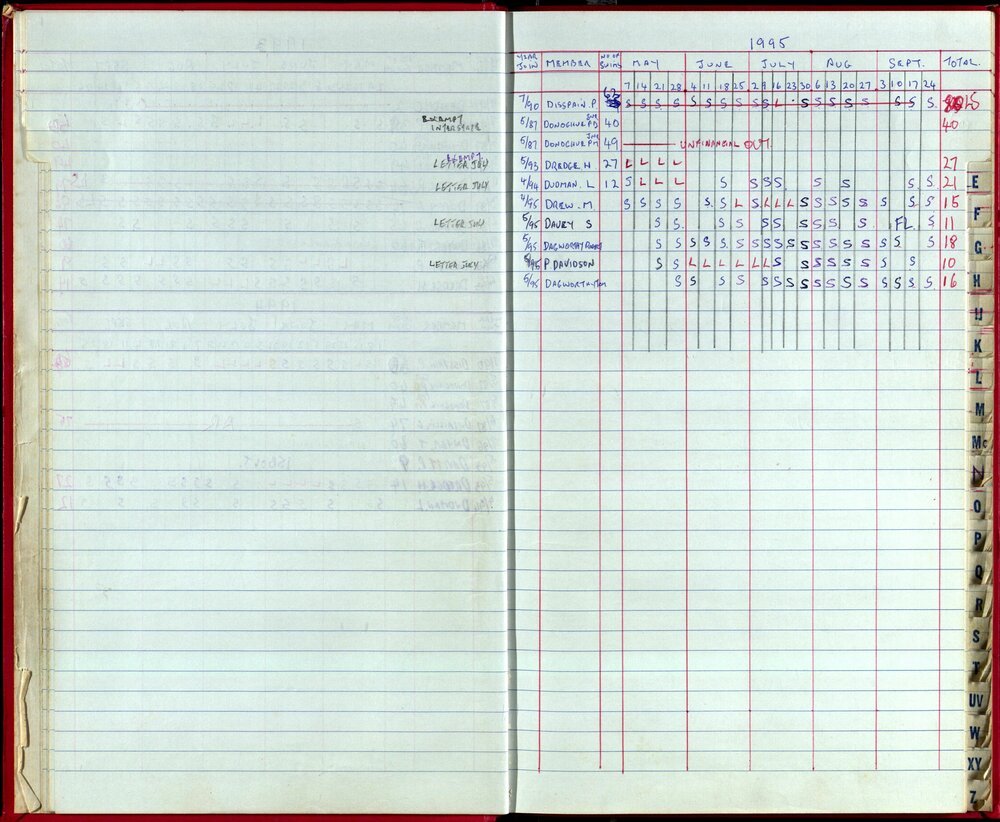 1995
YEAR JOIN MEMBER NO OF SWIMS MAY JUNE JULY AUG SEPT. TOTAL
7 14 21 28 4 11 18 25 2 9 16 23 30 6 13 20 27 3 10 17 24
7/90 DISSPAIN. P 63 S S S S S S S S S S L S S S S S S S S
EXEMPT INTERSTATE 5/87 DONOGHUE PD SNR 40 40
5/87 DONOGHUE PM JNR 49 UNFINANCIAL OUT.
EXEMPT LETTER JULY 5/93 DREDGE. H 27 L L L L 27
LETTER JULY 4/94 DUDMAN. L 12 S L L L S S S S S S S S 21
4/95 DREW. M S S S S S S L S L L L S S S S S S S S 15
LETTER JULY 5/95 DAVEY S S S S S S S S S S S FL S 11
5/95 DAGWORTHY S S S S S S S S S S S S S S S S S S 18
LETTER JULY P DAVIDSON S S L L L L L L S S S S S S S S 10
5/95 DAGWORTHY S S S S S S S S S S S S S S S S 16
E
F
G
H
K
L
M
Mc
N
O
P
Q
R
S
T
UV
W
XY
Z